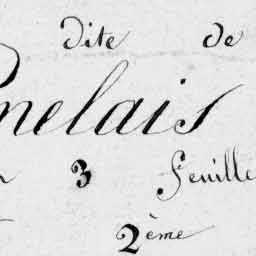 dite de
melais
3 feuille
2ème